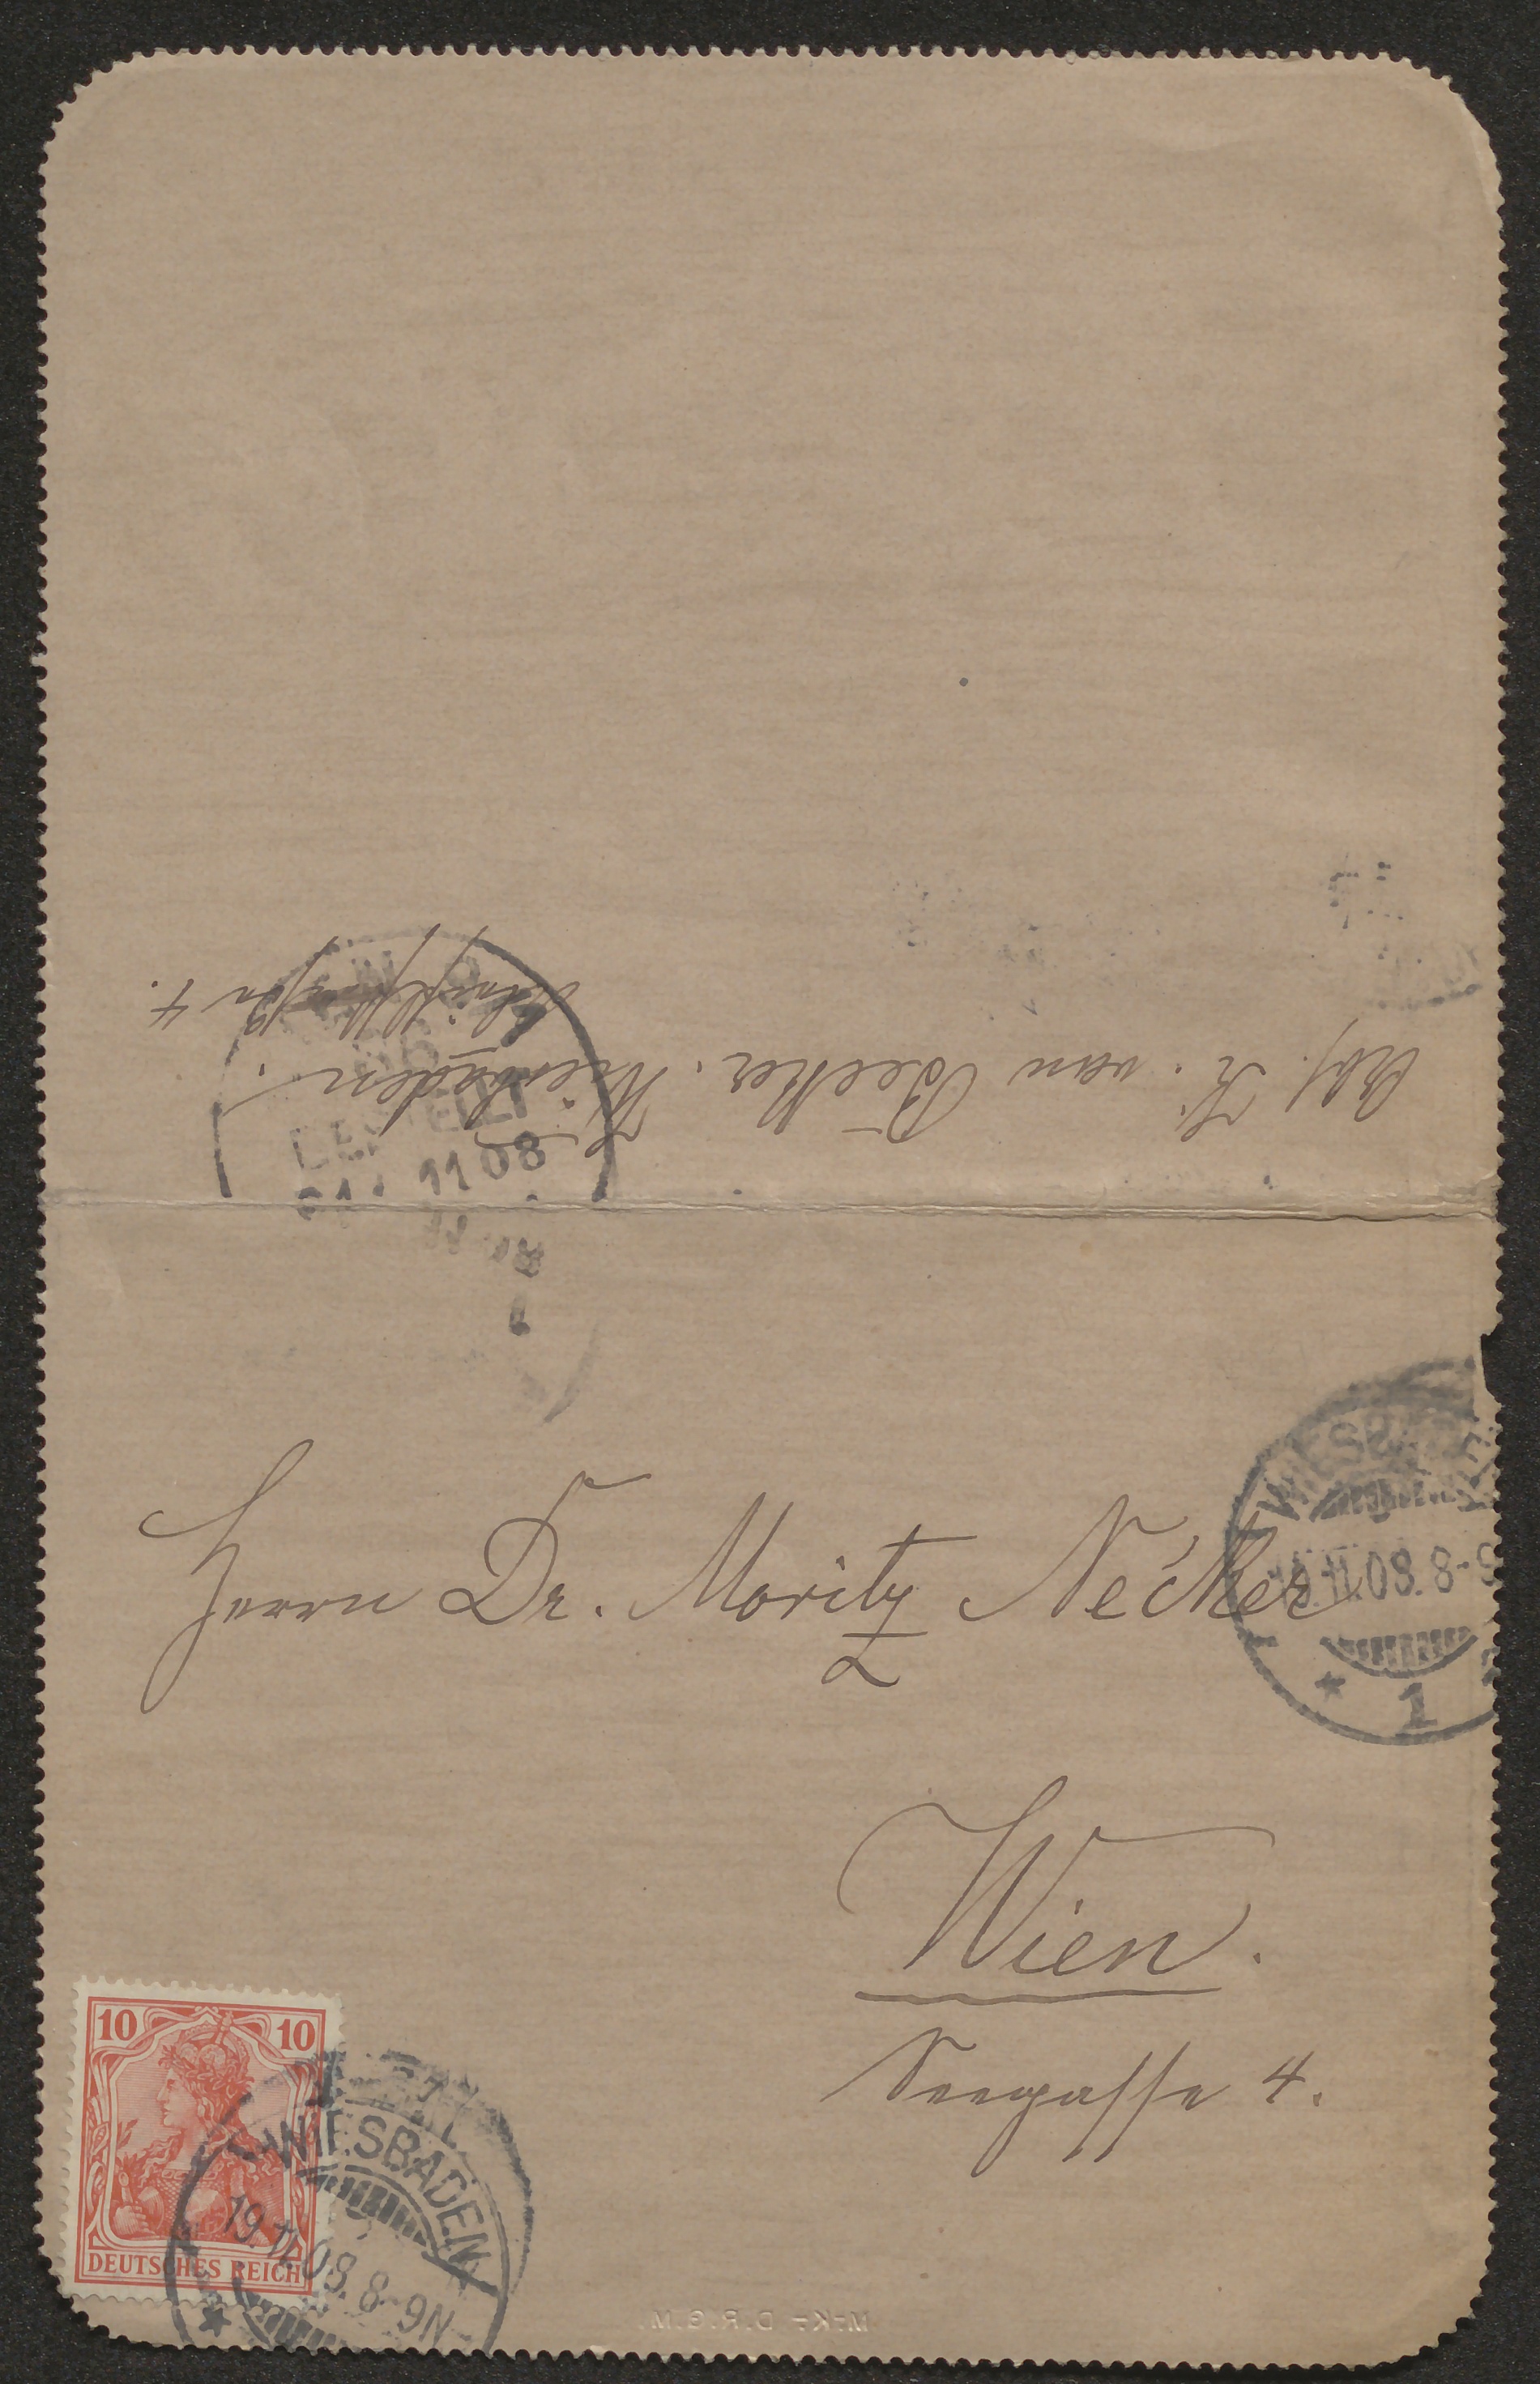 Abs. K. van Beeker. Wiesbaden.
4.
WIEN
BESTELLT
11 08
Herrn Dr. Moritz Necker
WIESBADEN
19.11.08. 8-9
* 1
Wien.
Seegasse 4.
10 10
DEUTSCHES REICH
WIESBADEN
19.11.08. 8-9N
*
M-K- D.R.G.M.